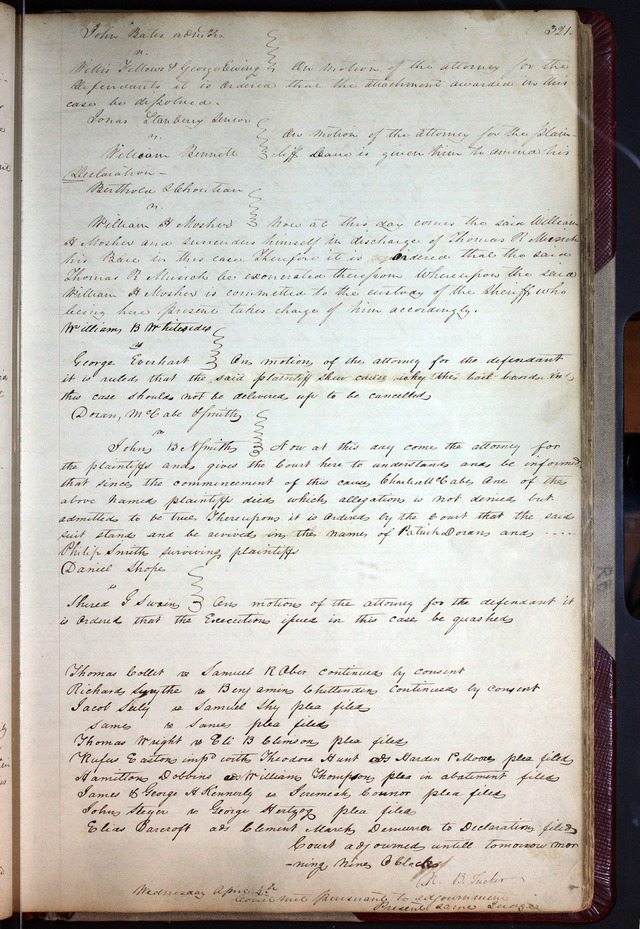 321.
John Bates adm'r
vs.
Willis Fellows & George Ewing On Motion of the attorney for the
defendants it is ordered that the attachment awarded in this
case be dissolved.
Jonas Stanberry Senior
vs. On motion of the attorney for the plain-
William Bennett tiff Leave is given him to amend his
Declaration -
Berthold & Chouteau
vs.
William H Mosher Now at this day comes the said William
H Mosher and surrenders himself in discharge of Thomas R Musick
his Bail in this case Therefore it is ordered that the said
Thomas R Musick be exonerated therefrom Whereupon the said
William H Mosher is committed to the custody of the Sheriff who
being here present takes charge of him accordingly.
William B Whitesides
vs
George Everhart On motion of the attorney for the defendant
it is ruled that the said plaintiff shew cause why the bail bond in
this case should not be delivered up to be cancelled
Doran, McCabe & Smith
vs
John B N Smith Now at this day come the attorney for
the plaintiffs and gives the Court here to understand and be informed
that since the commencement of this cause Charles McCabe one of the
above named plaintiffs died which allegation is not denied but
admitted to be true Thereupon it is ordered by the Court that the said
suit stand and be revived in the names of Patrick Doran and .....
Philip Smith surviving plaintiffs
Daniel Shope
vs
Shered G Swain On motion of the attorney for the defendant it
is ordered that the Execution issued in this case be quashed
Thomas Collet vs Samuel R Ober continued by consent
Richard Smythe vs Benjamin Chittenden continued by consent
Jacob Seely vs Samuel Shy plea filed
Same vs Same plea filed
Thomas Wright vs Eli B Clemson plea filed
Rufus Easton imp'd with Theodore Hunt ads Harden P Moore plea filed
Hamilton Dobbins ads William Thompson plea in abatement filed
James & George H Kennerly vs Jeremiah Connor plea filed
John Steyer vs George Hertzog plea filed
Elias Barcroft ads Clement March Demurrer to Declaration filed
Court adjourned untill tomorrow mor
-ning Nine O Clock
N. B. Tucker
Wednesday April 4th
Court met pursuant to adjournment
Present same Judge